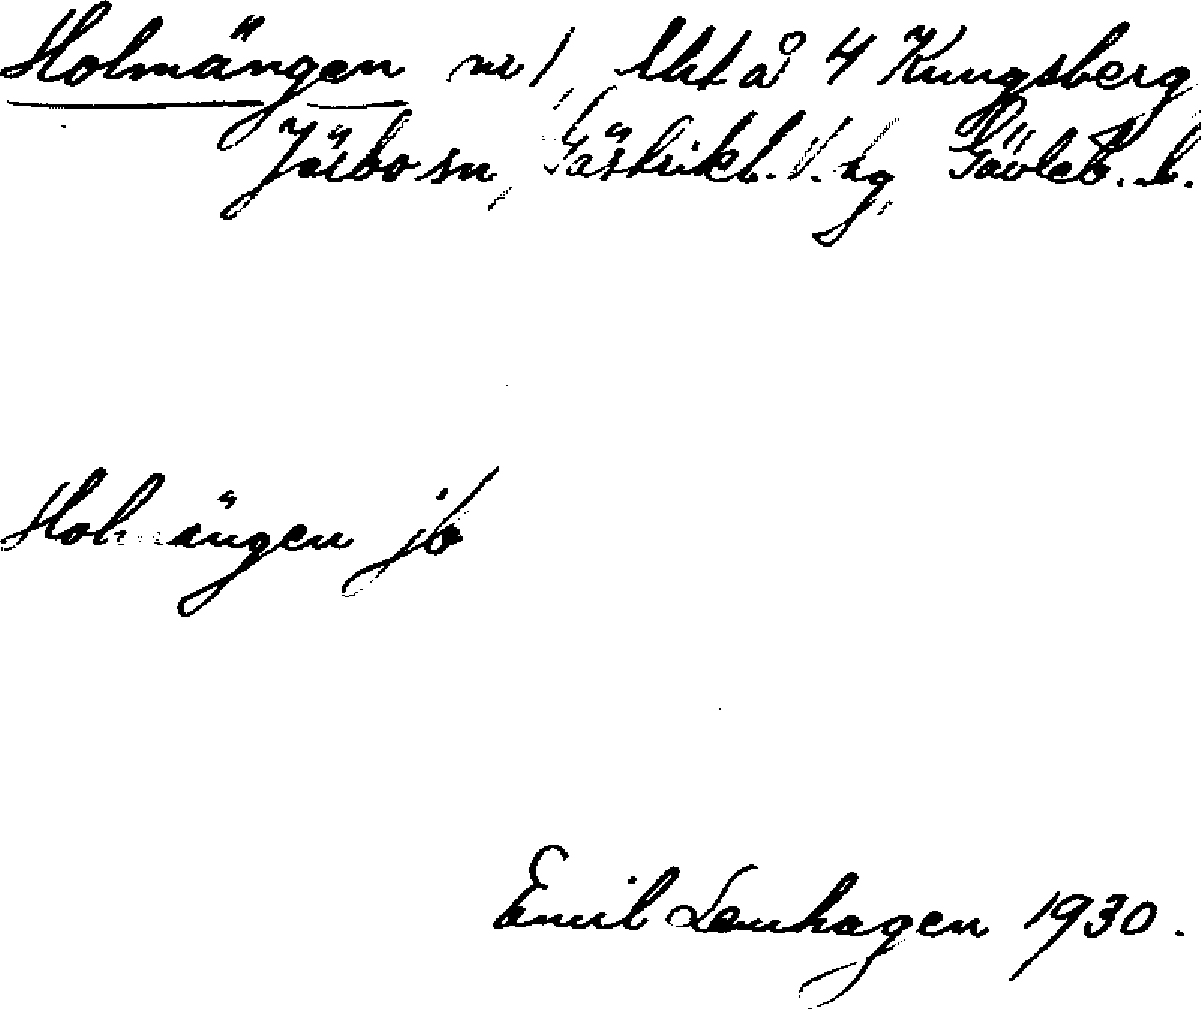 Holmängen nr 1, Utt å 4 Kungsberg
Järbo sn, Gästrikl. V. hg, Gävleb. l.
Holmängen jb
Emil Lenhagen 1930.